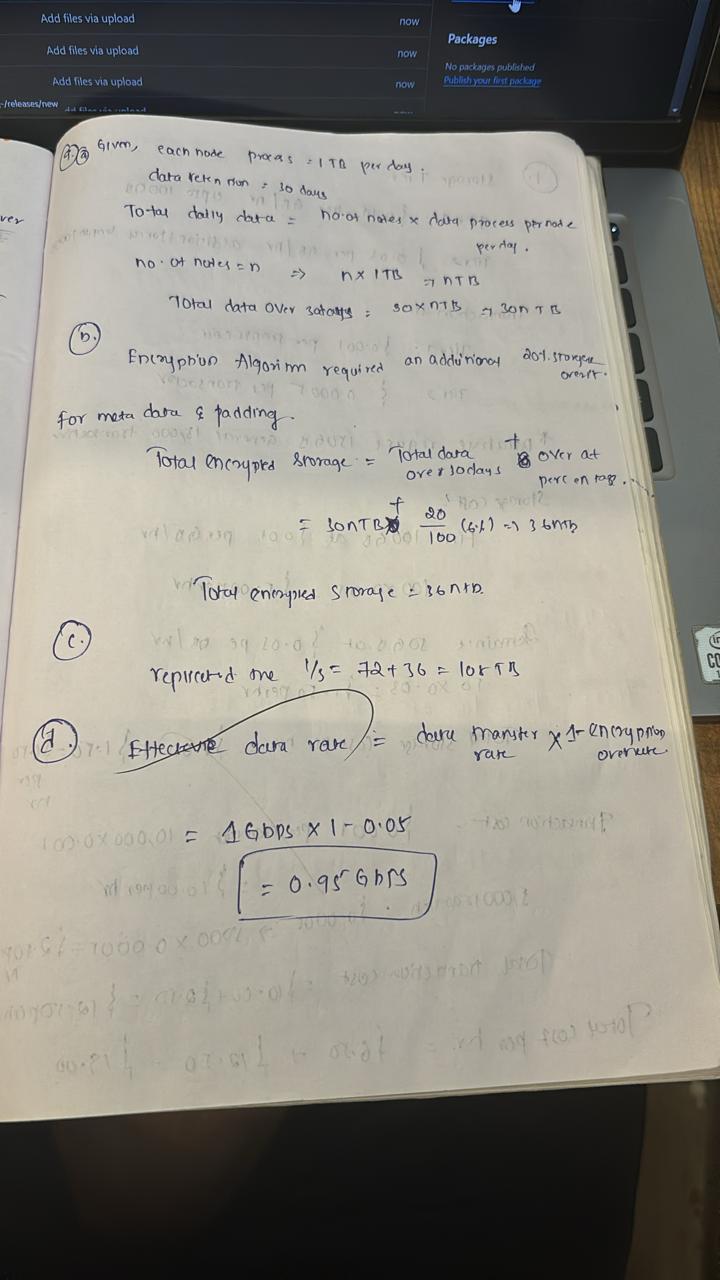 Add files via upload now
Add files via upload now
Add files via upload now
-/releases/new
Packages
No packages published
Publish your first package
9.) a) Given, each node process = 1TB per day.
data retention = 30 days
Total daily data = no.of notes x data process per node
per day.
no. of notes = n ⇒ n x 1TB ⇒ nTB
Total data over 30days = 30 x nTB ⇒ 30n TB
b.
Encryption Algorithm required an additional 20%. storage
for meta data & padding.
Total encrypted storage = Total data + over at
over 30days percentage.
= 30nTB + 20/100 ⇒ 36nTB
Total encrypted storage = 36nTB.
c.
replicated one 1/3 = 72 + 36 = 108 TB
d. Effective data rate = data transfer x 1 - encryption
rate
= 1Gbps x 1 - 0.05
= 0.95 Gbps